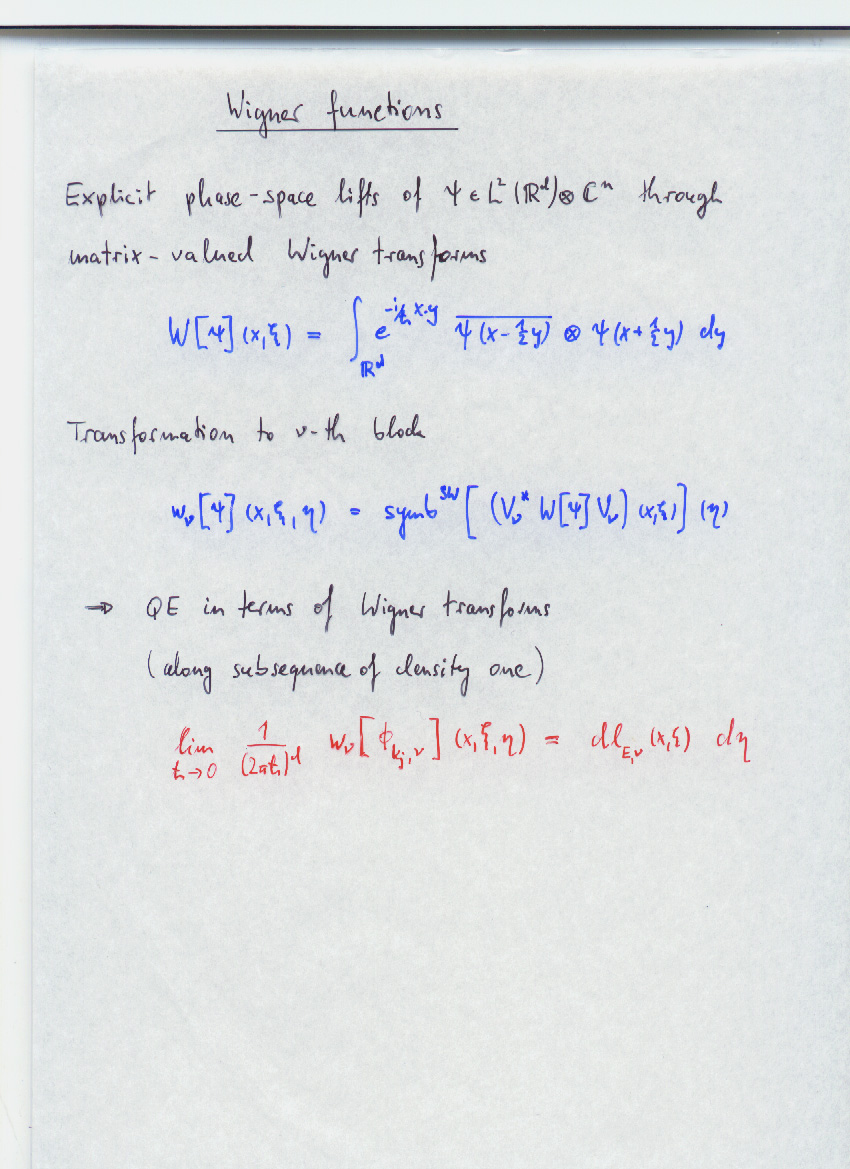 Wigner functions
Explicit phase-space lifts of Ψ ∈ L²(ℝᵈ)⊗ ℂⁿ through
matrix-valued Wigner transforms
W[Ψ](x,ξ) = ∫_{ℝᵈ} e^{-i/ħ x·y} \overline{Ψ(x-½y)} ⊗ Ψ(x+½y) dy
Transformation to ν-th block
w_ν[Ψ](x,ξ,η) = symb^{SW}[(V_ν^* W[Ψ] V_ν)(x,ξ)](η)
⇒ QE in terms of Wigner transforms
(along subsequence of density one)
lim_{ħ→0} 1/(2πħ)^d w_ν[ϕ_{kj,ν}](x,ξ,η) = dl_{E,ν}(x,ξ) dη